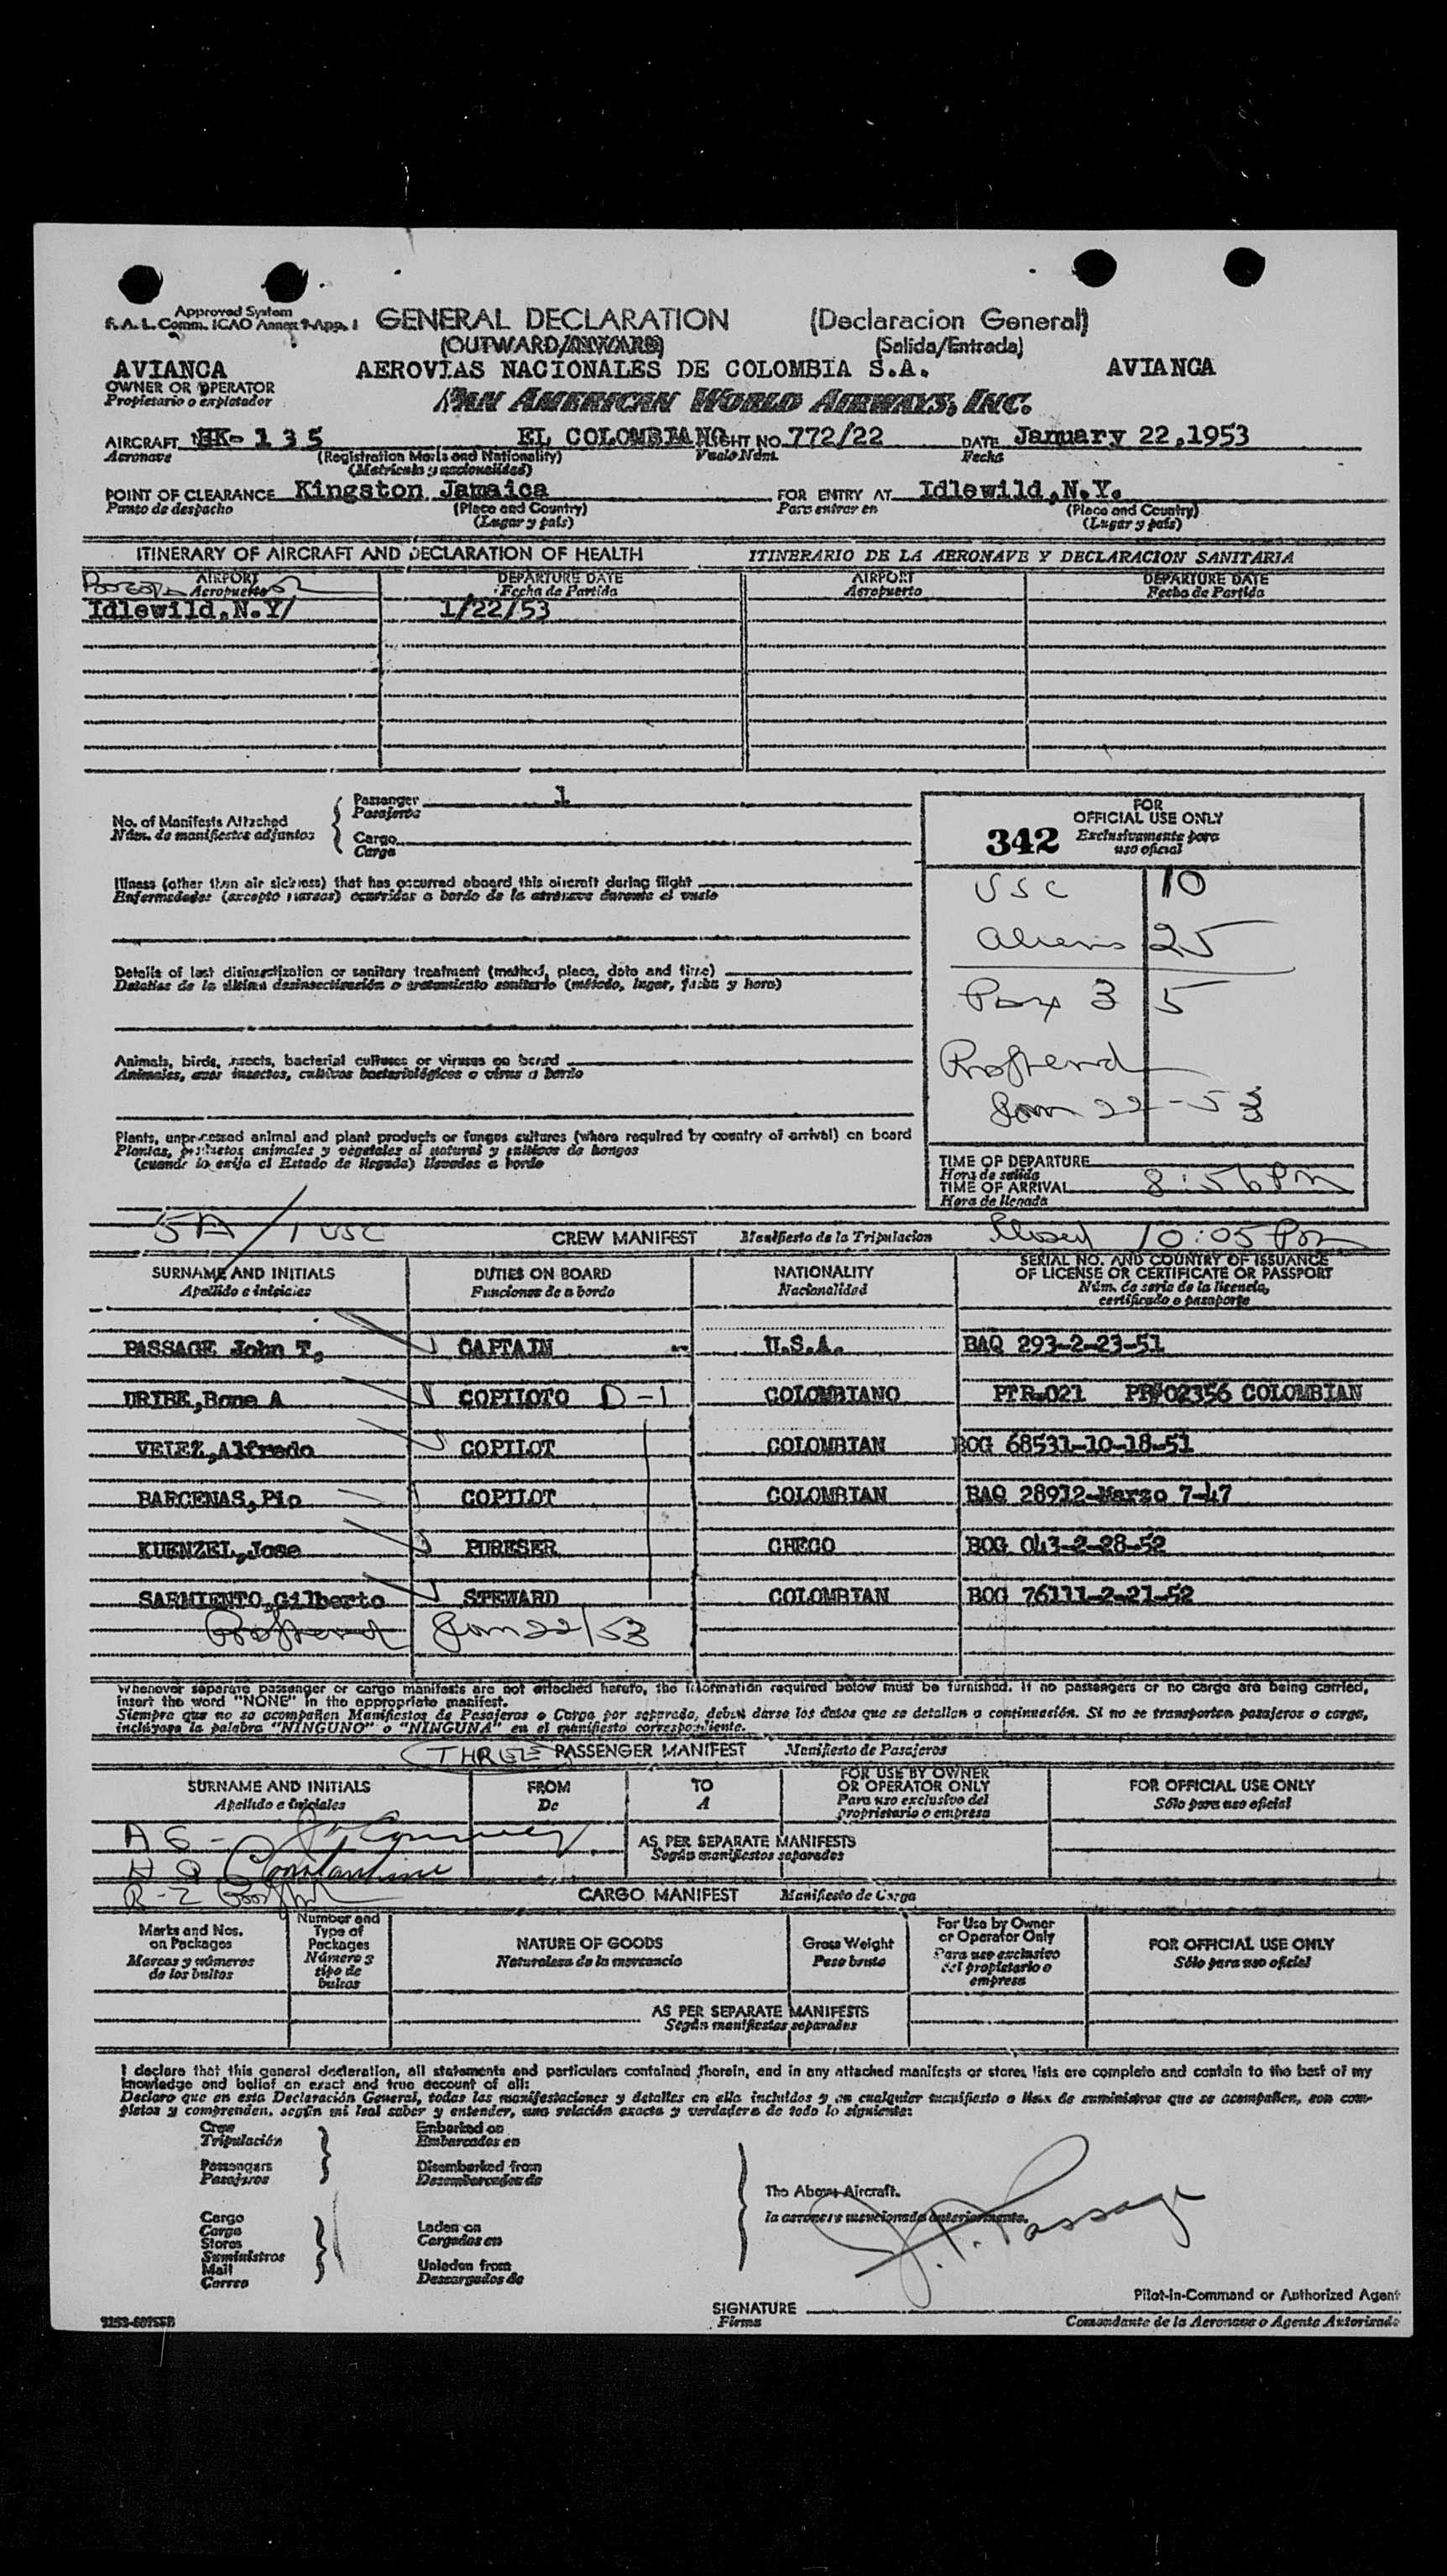 Approved System
F.A.L. Comm. ICAO Annex 9-App. 1
GENERAL DECLARATION (Declaracion General)
(OUTWARD/INWARD) (Salida/Entrada)
AVIANCA AEROVIAS NACIONALES DE COLOMBIA S.A. AVIANCA
OWNER OR OPERATOR
Propietario o explotador
PAN AMERICAN WORLD AIRWAYS, INC.
AIRCRAFT HK-135 EL COLOMBIANO FLIGHT NO. 772/22 DATE January 22,1953
Aeronave (Registration Marks and Nationality) Vuelo Núm. Fecha
(Matrícula y nacionalidad)
POINT OF CLEARANCE Kingston Jamaica FOR ENTRY AT Idlewild,N.Y.
Punto de despacho (Place and Country) Para entrar en (Place and Country)
(Lugar y país) (Lugar y país)
ITINERARY OF AIRCRAFT AND DECLARATION OF HEALTH ITINERARIO DE LA AERONAVE Y DECLARACION SANITARIA
AIRPORT DEPARTURE DATE AIRPORT DEPARTURE DATE
Aeropuerto Fecha de Partida Aeropuerto Fecha de Partida
Idlewild,N.Y/ 1/22/53
No. of Manifests Attached
Núm. de manifiestos adjuntos
Passenger 1
Pasajeros
Cargo
Carga
FOR
OFFICIAL USE ONLY
342 Exclusivamente para
uso oficial
Illness (other than air sickness) that has occurred aboard this aircraft during flight
Enfermedades (excepto mareos) ocurridas a bordo de la aeronave durante el vuelo
USC 10
Aliens 25
Pax 35
Details of last disinsectization or sanitary treatment (method, place, date and time)
Detalles de la última desinsectización o tratamiento sanitario (método, lugar, fecha y hora)
Animals, birds, insects, bacterial cultures or viruses on board
Animales, aves insectos, cultivos bacteriológicos o virus a bordo
Jan 22-53
Plants, unprocessed animal and plant products or fungus cultures (where required by country of arrival) on board
Plantas, productos animales y vegetales al natural y cultivos de hongos
(cuando lo exija el Estado de llegada) llevados a bordo
TIME OF DEPARTURE
Hora de salida
TIME OF ARRIVAL 8:56 PM
Hora de llegada
5A/1 USC CREW MANIFEST Manifiesto de la Tripulacion Closed 10:05 Pm
SURNAME AND INITIALS DUTIES ON BOARD NATIONALITY SERIAL NO. AND COUNTRY OF ISSUANCE
OF LICENSE OR CERTIFICATE OR PASSPORT
Apellido e iniciales Funciones de a bordo Nacionalidad Núm. de serie de la licencia,
certificado o pasaporte
PASSAGE John T. CAPTAIN U.S.A. BAQ 293-2-23-51
URIBE,Rene A COPILOTO D-1 COLOMBIANO PTR.021 PP#02356 COLOMBIAN
VELEZ,Alfredo COPILOT COLOMBIAN BOG 68531-10-18-51
BARCENAS,Pio COPILOT COLOMBIAN BAQ 28912-Marzo 7-47
KUENZEL,Jose PURESER CHECO BOG 043-2-28-52
SARMIENTO,Gilberto STEWARD COLOMBIAN BOG 76111-2-21-52
Jan 22/53
Whenever separate passenger or cargo manifests are not attached hereto, the information required below must be furnished. If no passengers or no cargo are being carried,
insert the word "NONE" in the appropriate manifest.
Siempre que no se acompañen Manifiestos de Pasajeros o Carga por separado, deben darse los datos que se detallan a continuación. Si no se transportan pasajeros o carga,
inclúyase la palabra "NINGUNO" o "NINGUNA" en el manifiesto correspondiente.
THREE PASSENGER MANIFEST Manifiesto de Pasajeros
SURNAME AND INITIALS FROM TO FOR USE BY OWNER
OR OPERATOR ONLY FOR OFFICIAL USE ONLY
Apellido e iniciales De A Para uso exclusivo del
proprietario o empresa Sólo para uso oficial
AS PER SEPARATE MANIFESTS
Según manifiestos separados
Constantine
CARGO MANIFEST Manifiesto de Carga
Marks and Nos.
on Packages
Marcas y números
de los bultos
Number and
Type of
Packages
Número y
tipo de
bultos
NATURE OF GOODS
Naturaleza de la mercancía
Gross Weight
Peso bruto
For Use by Owner
or Operator Only
Para uso exclusivo
del propietario o
empresa
FOR OFFICIAL USE ONLY
Sólo para uso oficial
AS PER SEPARATE MANIFESTS
Según manifiestos separados
I declare that this general declaration, all statements and particulars contained therein, and in any attached manifests or stores lists are complete and contain to the best of my
knowledge and belief an exact and true account of all:
Declaro que en esta Declaración General, todas las manifestaciones y detalles en ella incluidos y en cualquier manifiesto o lista de suministros que se acompañen, son com-
pletos y comprenden, según mi leal saber y entender, una relación exacta y verdadera de todo lo siguiente:
Crew
Tripulación
Passengers
Pasajeros
Embarked on
Embarcados en
Disembarked from
Desembarcados de
Cargo
Carga
Stores
Suministros
Mail
Correo
Laden on
Cargados en
Unladen from
Descargados de
The Above Aircraft.
la aeronave mencionada anteriormente.
J. T. Passage
SIGNATURE
Firma
Pilot-in-Command or Authorized Agent
Comandante de la Aeronave o Agente Autorizado